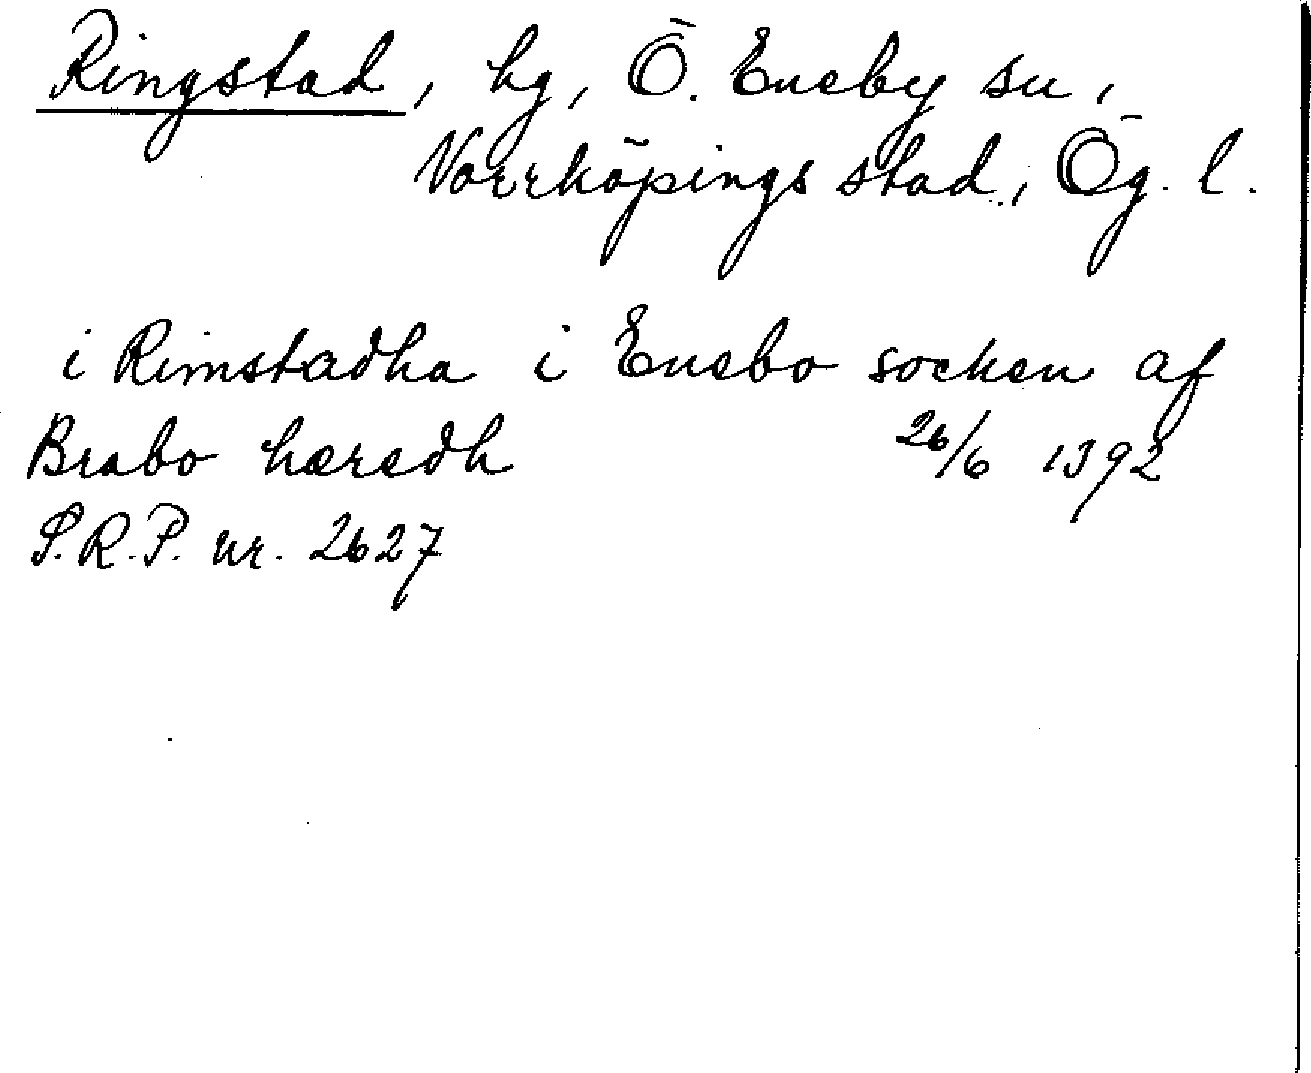 Ringstad, hg, Ö. Eneby sn,
Norrköpings stad, Ög. l.
i Rimstadha i Enebo socken af
Brabo hæredh 26/6 1392
S.R.P. nr. 2627